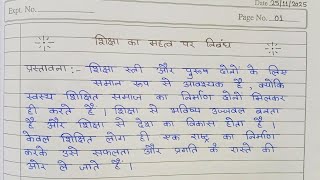 Date 25/11/2025
Expt. No.
Page No. 01
शिक्षा का महत्व पर निबंध
प्रस्तावना:- शिक्षा स्त्री और पुरुष दोनों के लिए
समान रूप से आवश्यक है, क्योंकि
स्वस्थ शिक्षित समाज का निर्माण दोनों मिलकर
ही करते हैं। शिक्षा से भविष्य उज्जवल बनता
है और शिक्षा से देश का विकास होता है।
केवल शिक्षित लोग ही एक राष्ट्र का निर्माण
करके उसे सफलता और प्रगति के रास्ते की
ओर ले जाते हैं।